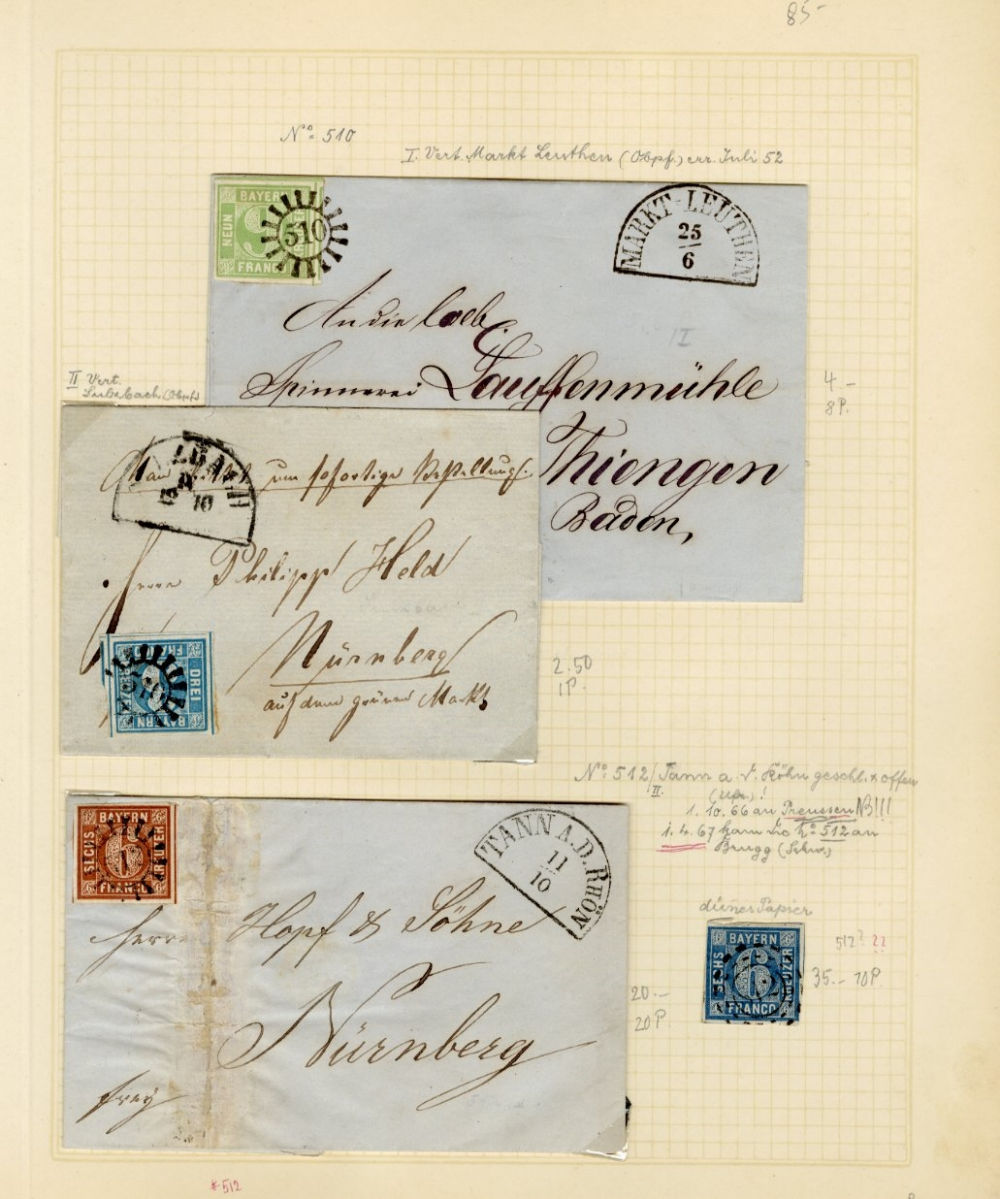 85-
No 510
I. Vert. Markt Leuthen (Obpf.) err. Juli 52
BAYERN
NEUN
FRANCO
510
MARKT-LEUTHEN
25
6
I
An die loebl.
Spinnerei Lauffenmühle
Thiengen
Baden,
4.-
8P.
II Vert.
um sofortige Bestellung.
10
Herrn Philipp Held
Nürnberg
auf dem grünen Markt
DREI
BAYERN
510
2.50
1P.
No 512/ Tann a. d. Röhn geschl. & offen
II.
1. 10. 66 an Preussen NB!!!
1. 4. 67 kam No 512 an
Brugg (Schw.)
BAYERN
SECHS
KREUZER
FRANCO
TANN A.D. RHÖN
11
10
Herrn Hopf & Söhne
Nürnberg
frey
20.-
20P
dünes Papier
BAYERN
SECHS
KREUZER
FRANCO
6
512? 22
35.- 70P.
*512